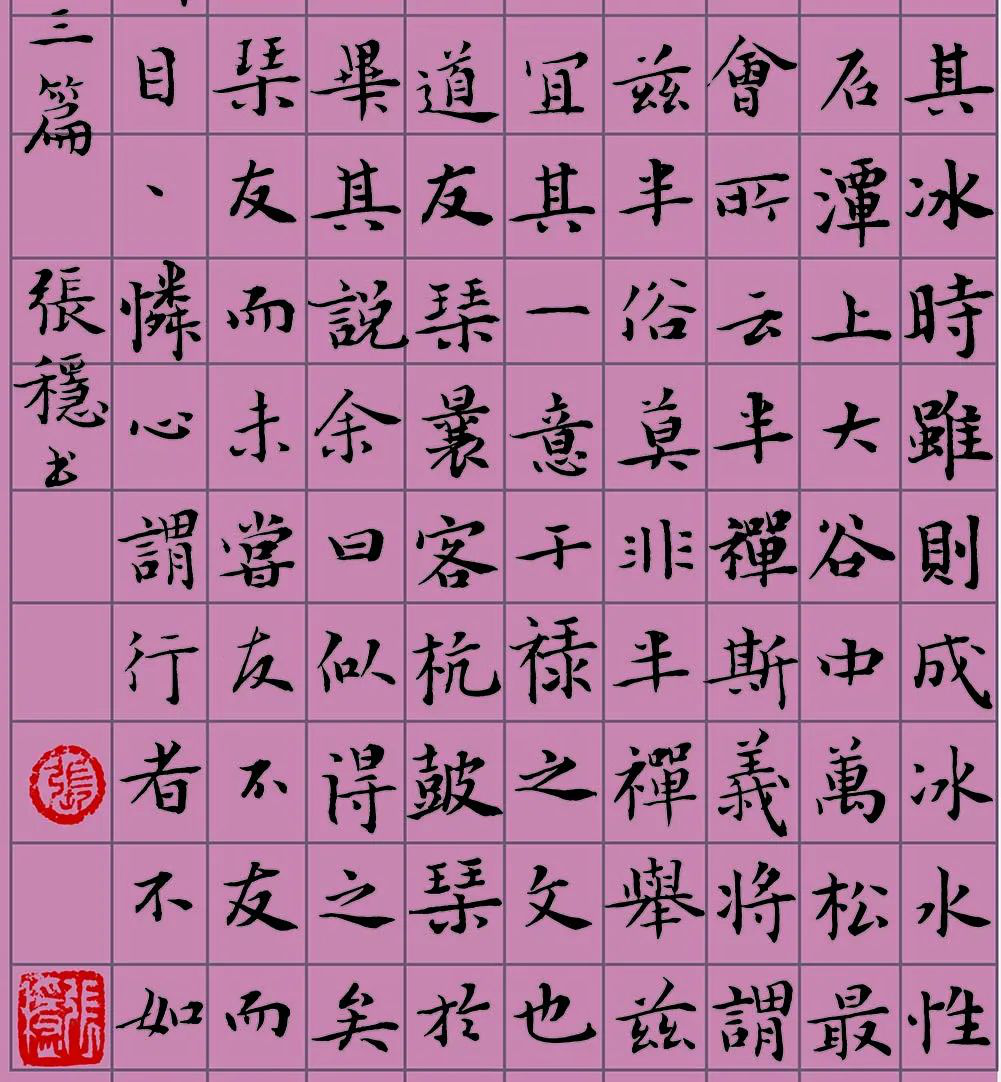 其冰時雖則成冰水性
后潭上大谷中萬松最
會所云半禪斯義將謂
兹半俗莫非半禪舉兹
宜其一意于禄之文也
道友琹曩客杭鼓琹於
畢其說余曰似得之矣
琹友而未嘗友不友而
目、憐心謂行者不如
三篇 張穩书
張
張穩